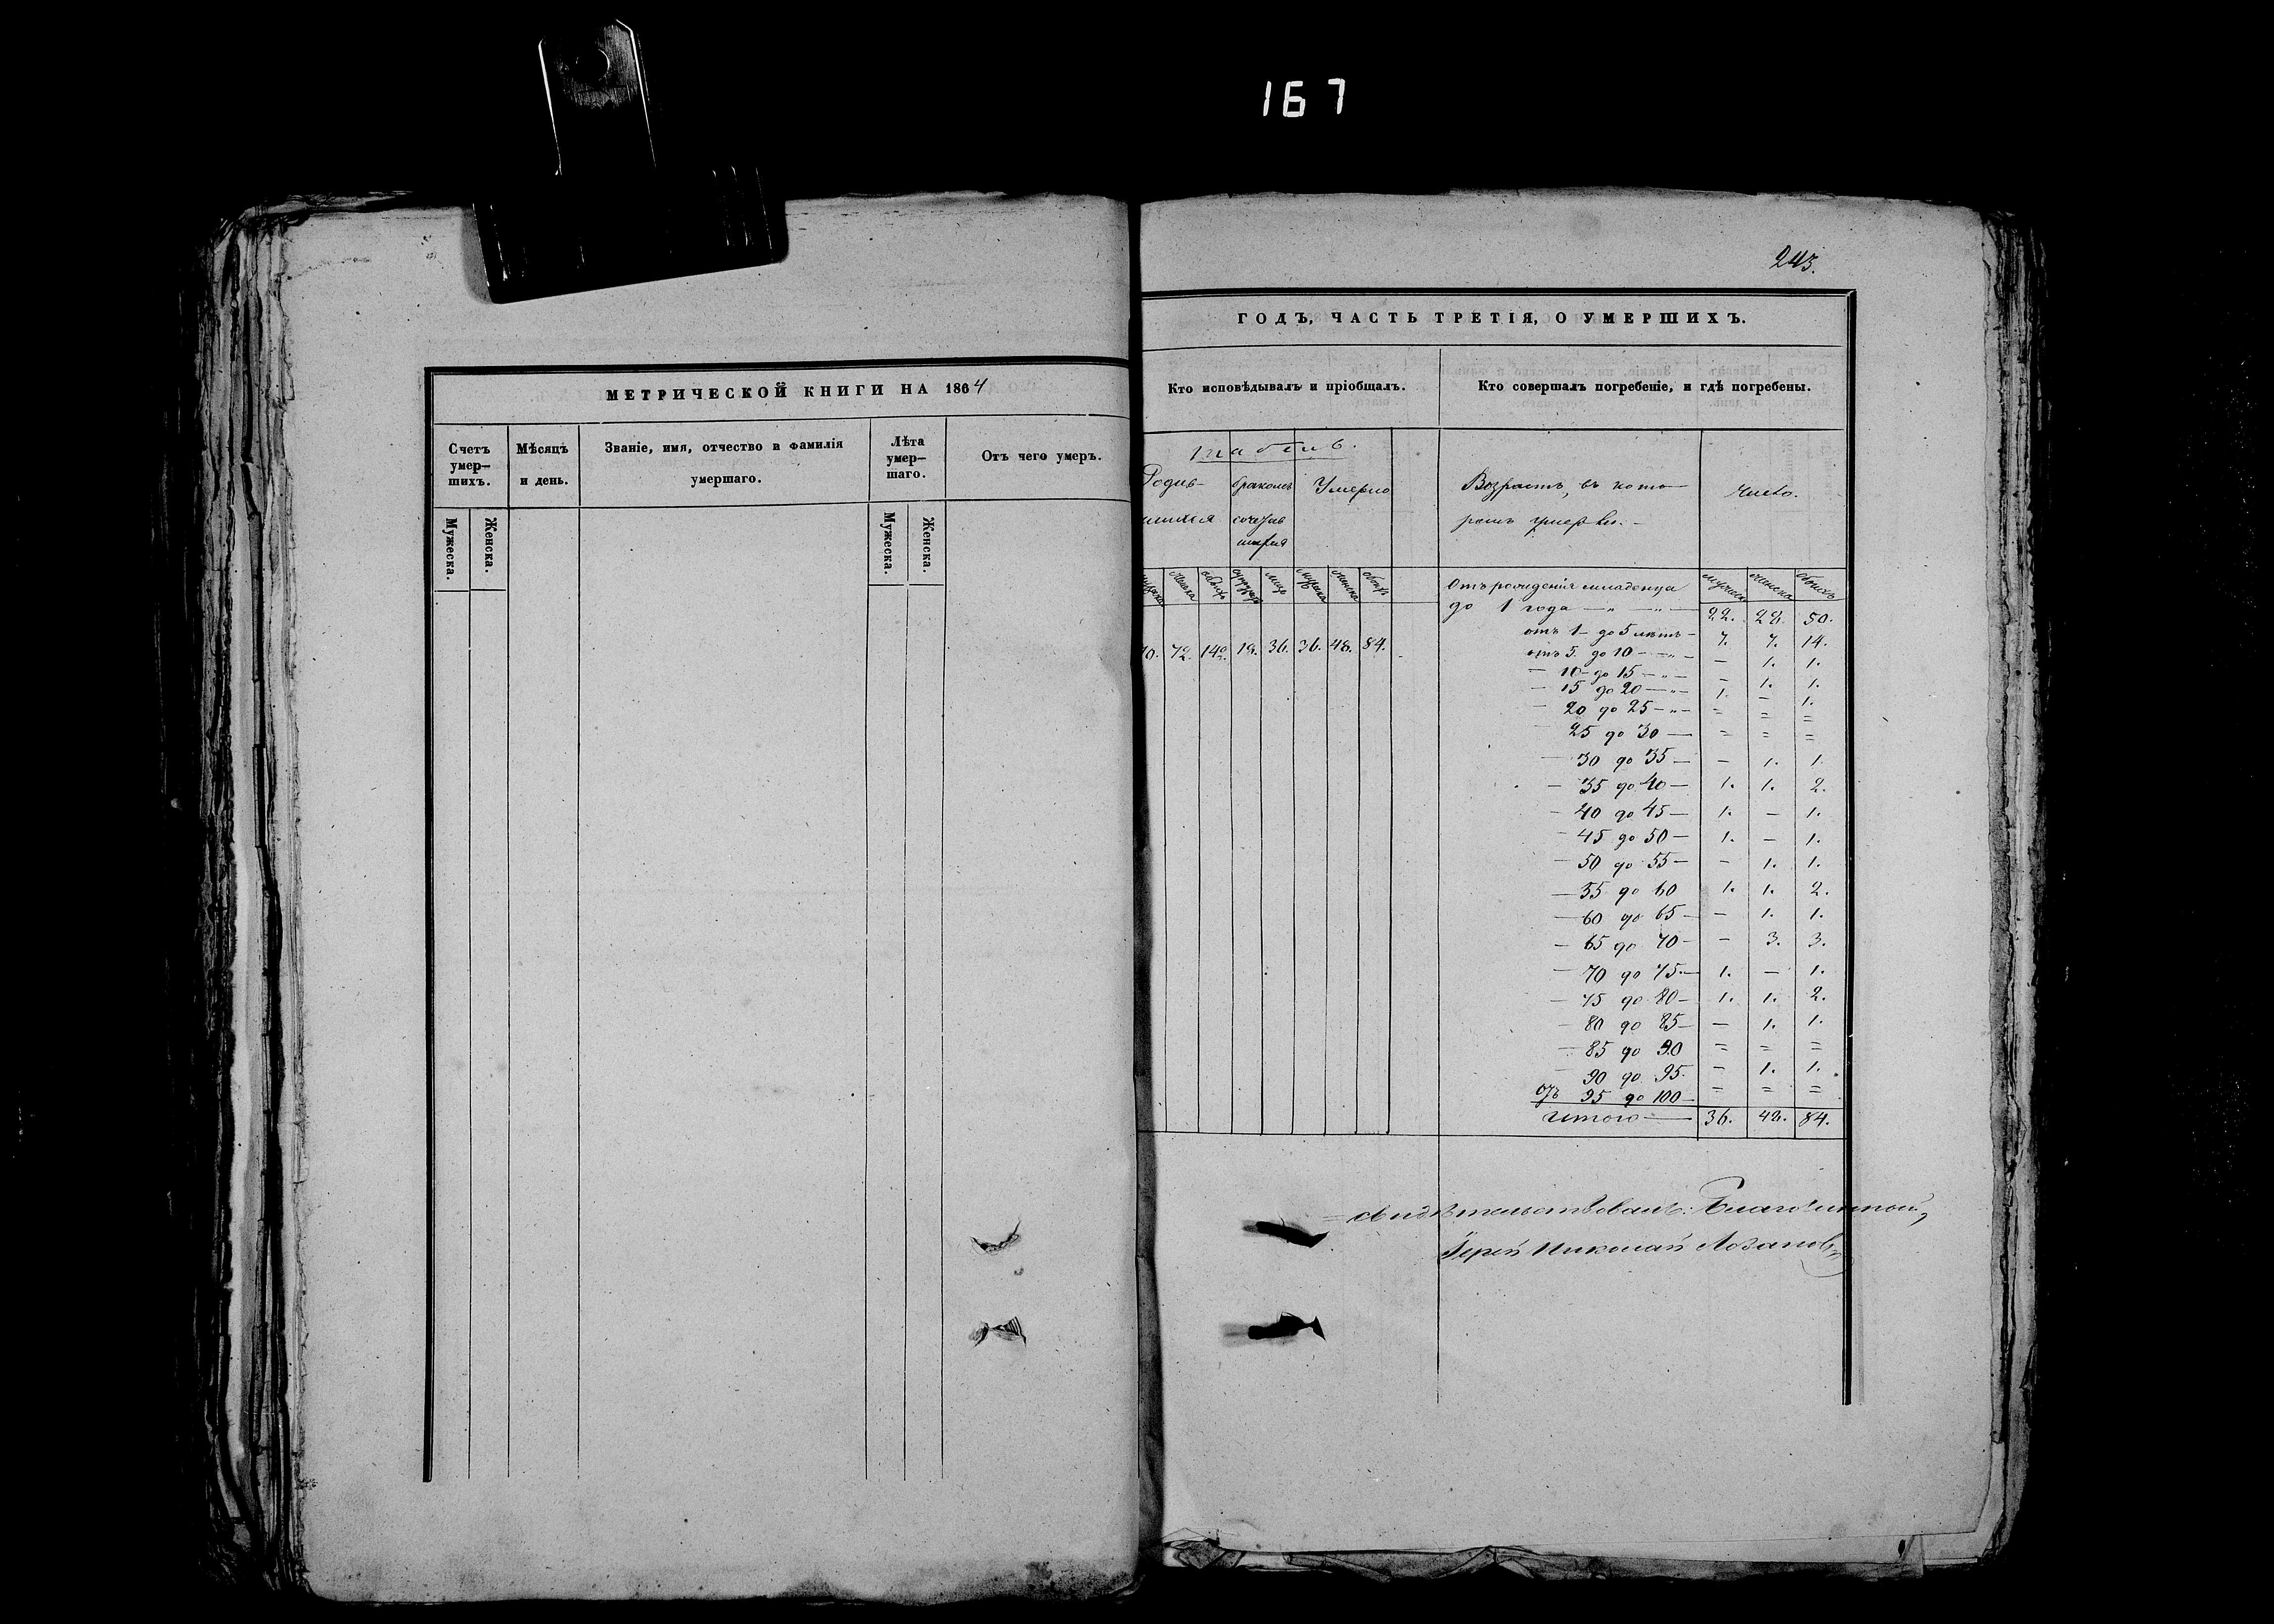 167
243.
МЕТРИЧЕСКОЙ КНИГИ НА 1864
Счетъ умер–шихъ.
Мѣсяцъ и день.
Званіе, имя, отчество и фамилія умершаго.
Лѣта умер–шаго.
Отъ чего умеръ.
Мужеска.
Женска.
Мужеска.
Женска.
ГОДЪ, ЧАСТЬ ТРЕТІЯ, О УМЕРШИХЪ.
Кто исповѣдывалъ и пріобщалъ.
Кто совершалъ погребеніе, и гдѣ погребены.
Родив–
шихся
бракомъ
Умерло
Возрастъ, въ кото–
ромъ умерли.–
Число.
72. 142. 18. 36. 36. 48. 84.
Отъ рожденія младенца
до 1 года — „ — „ — 22. 28. 50.
отъ 1– до 5 лѣтъ – 7. 7. 14.
отъ 5. до 10 – „ – – 1. 1.
– 10 – до 15 – „ – – 1. 1.
– 15 до 20 – „ – 1. – 1.
– 20 до 25 – „ – = = =
25 до 30 — = = =
– 30 до 35 – – 1. 1.
– 35 до 40 – 1. 1. 2.
– 40 до 45 – 1. – 1.
– 45 до 50 – 1. – 1.
– 50 до 55 – – 1. 1.
– 55 до 60 1. 1. 2.
– 60 до 65 – – 1. 1.
– 65 до 70 – – 3. 3.
– 70 до 75. – 1. – 1.
– 75 до 80 – 1. 1. 2.
– 80 до 85 – – 1. 1.
– 85 до 90 = = =
90 до 95. – 1. 1.
отъ 95 до 100 – = = =
Итого — 36. 48. 84.
= свидѣтельствовалъ: Благочинной,
Іерей Николай Лозановъ